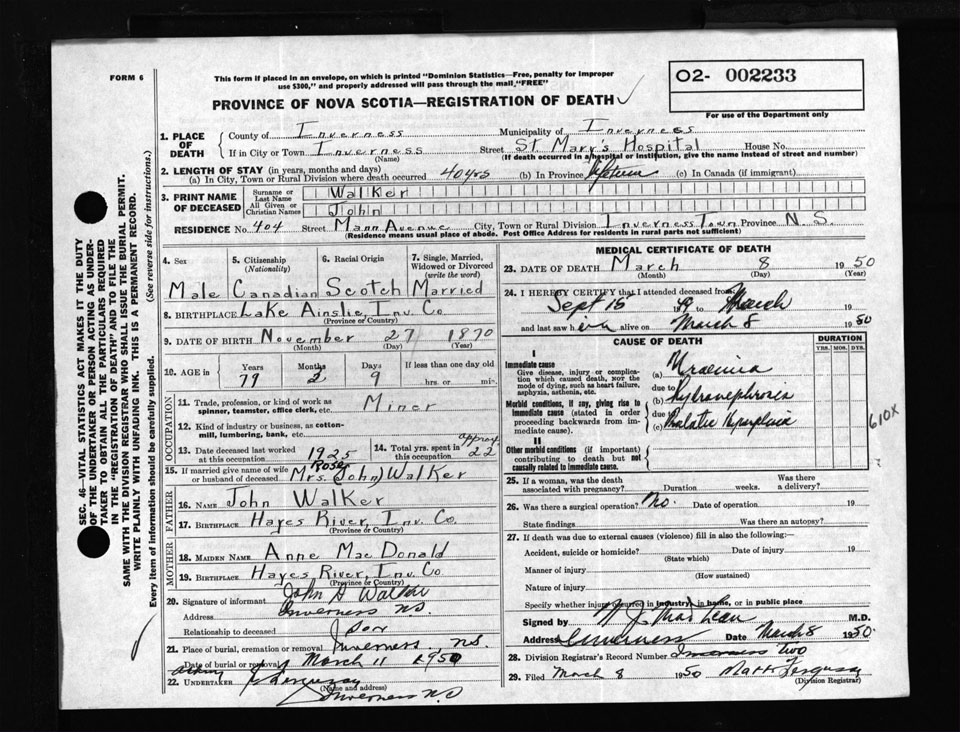 FORM 6
This form if placed in an envelope, on which is printed "Dominion Statistics—Free, penalty for improper
use $300," and properly addressed will pass through the mail, "FREE"
PROVINCE OF NOVA SCOTIA—REGISTRATION OF DEATH ✓
O2- 002233
For use of the Department only
1. PLACE OF DEATH { County of Inverness Municipality of Inverness
If in City or Town Inverness Street St Mary's Hospital House No.
(Name) (If death occurred in a hospital or institution, give the name instead of street and number)
2. LENGTH OF STAY (in years, months and days)
(a) In City, Town or Rural Division where death occurred 40 yrs (b) In Province Lifetime (c) In Canada (if immigrant)
3. PRINT NAME OF DECEASED { Surname or Last Name Walker
All Given or Christian Names John
RESIDENCE No. 404 Street Mann Avenue City, Town or Rural Division Inverness Town Province N.S.
(Residence means usual place of abode. Post Office Address for residents in rural parts not sufficient)
4. Sex 5. Citizenship (Nationality) 6. Racial Origin 7. Single, Married, Widowed or Divorced (write the word)
Male Canadian Scotch Married
8. BIRTHPLACE Lake Ainslie, Inv. Co
(Province or Country)
9. DATE OF BIRTH November 27 1870
(Month) (Day) (Year)
10. AGE in { Years Months Days If less than one day old
79 2 9 hrs. or min.
OCCUPATION
11. Trade, profession or kind of work as spinner, teamster, office clerk, etc. Miner
12. Kind of industry or business, as cotton-mill, lumbering, bank, etc.
13. Date deceased last worked at this occupation 1925 14. Total yrs. spent in this occupation approx. 22
15. If married give name of wife or husband of deceased Mrs. (Rose John) Walker
FATHER
16. NAME John Walker
17. BIRTHPLACE Hayes River, Inv. Co.
(Province or Country)
MOTHER
18. MAIDEN NAME Anne MacDonald
19. BIRTHPLACE Hayes River, Inv. Co
(Province or Country)
20. Signature of informant John A Walker
Address Inverness N.S.
Relationship to deceased Son
21. Place of burial, cremation or removal Inverness, N.S.
Date of burial or removal March 11 1950
22. UNDERTAKER J Ferguson
(Name and address) Inverness N.S
MEDICAL CERTIFICATE OF DEATH
23. DATE OF DEATH March 8 1950
(Month) (Day) (Year)
24. I HEREBY CERTIFY that I attended deceased from
Sept 15 1949 to March 19
and last saw him alive on March 8 1950
CAUSE OF DEATH DURATION
YRS. MOS. DYS.
I
Immediate cause
Give disease, injury or complication which caused death, NOT the mode of dying, such as heart failure, asphyxia, asthenia, etc.
(a) Uraemia
due to
Morbid conditions, if any, giving rise to immediate cause (stated in order proceeding backwards from immediate cause).
(b) Hydronephrosis
due to
(c) Prostatic Hyperplasia
610X
II
Other morbid conditions (if important) contributing to death but not causally related to immediate cause.
25. If a woman, was the death associated with pregnancy? Duration weeks. Was there a delivery?
26. Was there a surgical operation? No. Date of operation 19
State findings Was there an autopsy?
27. If death was due to external causes (violence) fill in also the following:—
Accident, suicide or homicide? Date of injury 19
(State which)
Manner of injury
(How sustained)
Nature of injury
Specify whether injury occurred in industry, in home, or in public place
Signed by N J MacLean M.D.
Address Inverness Date March 8 1950
28. Division Registrar's Record Number Inverness Two
29. Filed March 8 1950 Matt Ferguson
(Division Registrar)
SEC. 46—VITAL STATISTICS ACT MAKES IT THE DUTY
OF THE UNDERTAKER OR PERSON ACTING AS UNDER-
TAKER TO OBTAIN ALL THE PARTICULARS REQUIRED
IN THE "REGISTRATION OF DEATH" AND TO FILE THE
SAME WITH THE DIVISION REGISTRAR WHO SHALL ISSUE THE BURIAL PERMIT.
WRITE PLAINLY WITH UNFADING INK. THIS IS A PERMANENT RECORD.
Every item of information should be carefully supplied. (See reverse side for instructions.)